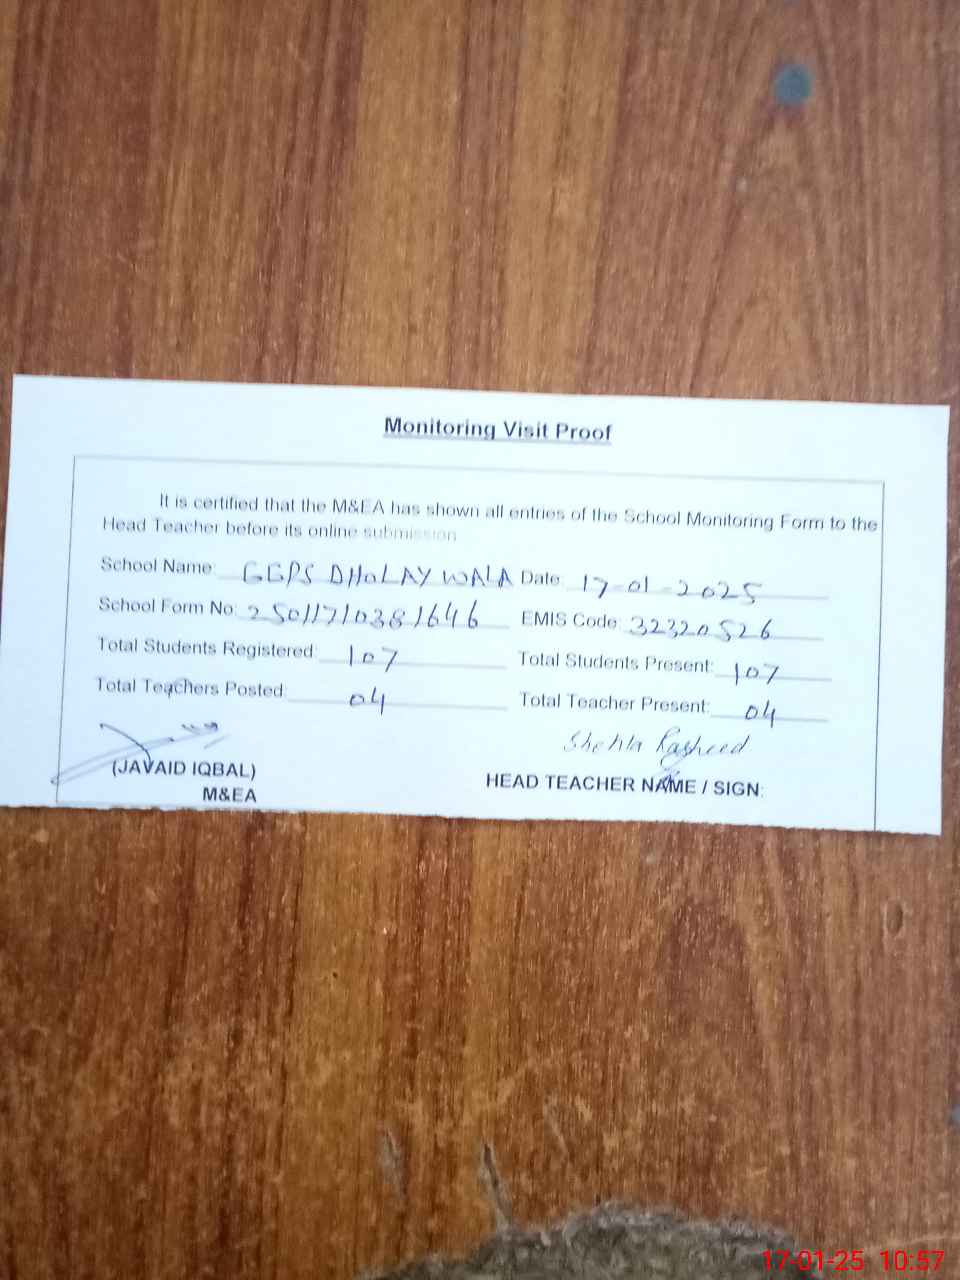 Monitoring Visit Proof
It is certified that the M&EA has shown all entries of the School Monitoring Form to the
Head Teacher before its online submission
School Name: GGPS DHOLAY WALA Date: 17-01-2025
School Form No: 2501171038 1646 EMIS Code: 32320526
Total Students Registered: 107 Total Students Present: 107
Total Teachers Posted: 04 Total Teacher Present: 04
Shehla Rasheed
(JAVAID IQBAL) HEAD TEACHER NAME / SIGN:
M&EA
17-01-25 10:57